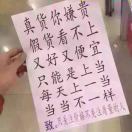 真货你嫌贵
假货看不上
又好又便宜
只能是上当
每天上一当
当当不一样
致